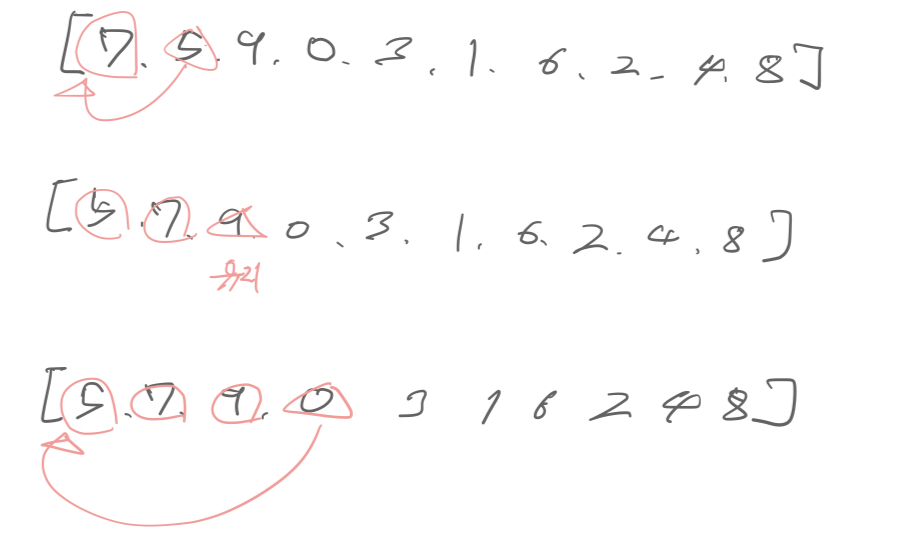 [7. 5. 9. 0. 3. 1. 6. 2. 4. 8]
[5. 7. 9 0. 3. 1. 6. 2. 4. 8]
유지
[5. 7. 9. 0 3 1 6 2 4 8]